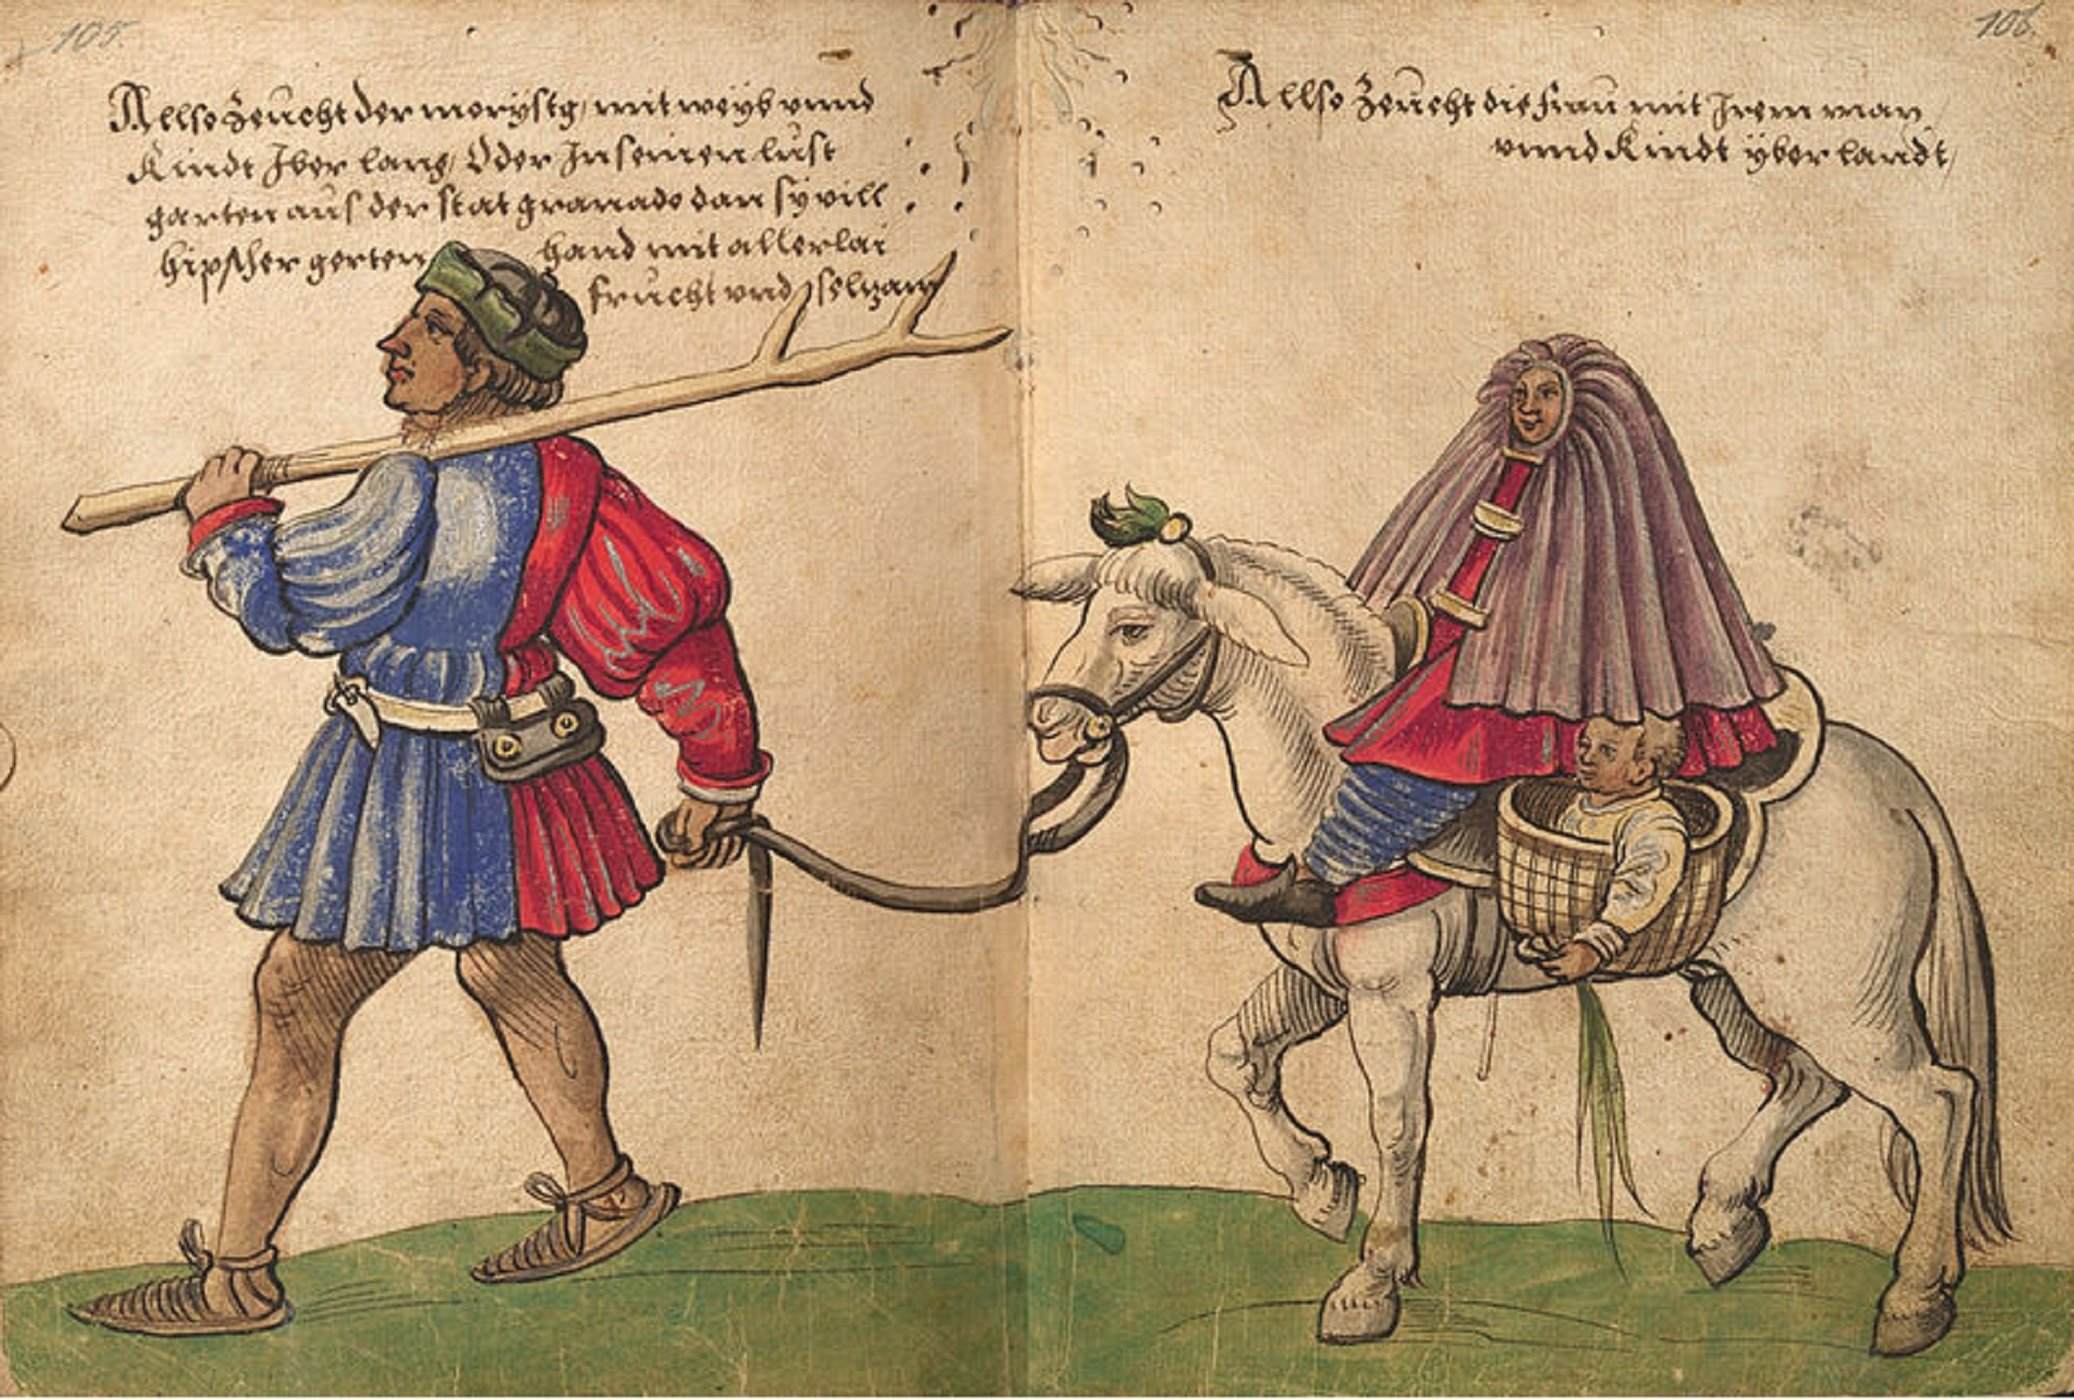 105.
Allso zeücht der morysch, mit weÿb vnnd
Kindt Iber lanξ, Oder In seinen lust
garten aus der stat granado dan sÿ vill
hipscher gerten hand mit allerlai
frucht vnd selzam
106.
Allso zeücht die fraü mit Irem man
vnnd Kindt ÿber landt,